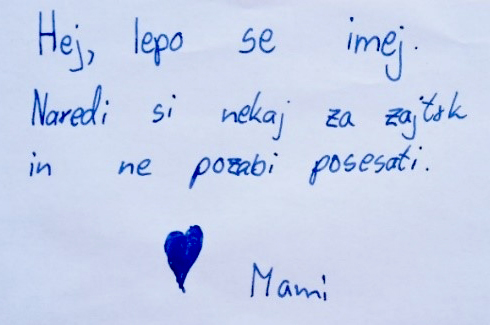 Hej, lepo se imej.
Naredi si nekaj za zajtrk
in ne pozabi posesati.
Mami